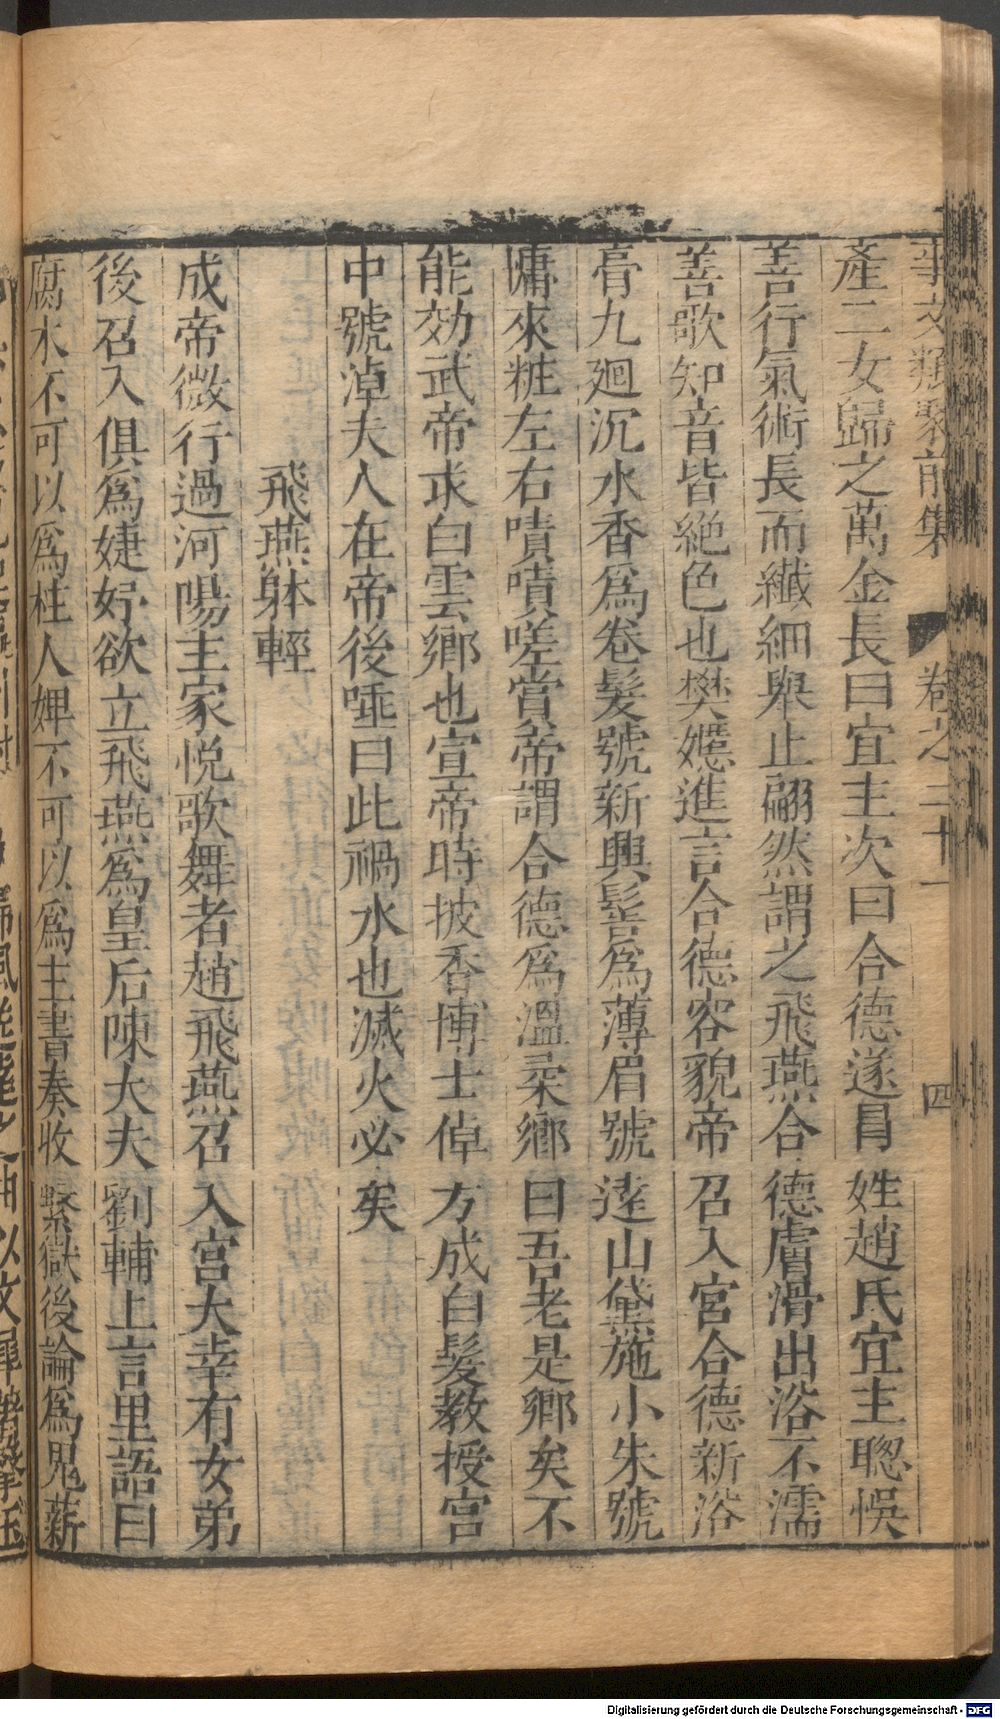 事文類聚前集 卷之二十一 四
產二女歸之萬金長曰宜主次曰合德遂冒姓趙氏宜主聰悞
善行氣術長而纖細舉止翩然謂之飛燕合德膚滑出浴不濡
善歌知音皆絶色也樊嬺進言合德容貌帝召入宮合德新浴
膏九廻沉水香爲卷髮號新興髻爲薄眉號逺山黛施小朱號
慵來粧左右嘖嘖嗟賞帝謂合德爲溫柔鄉曰吾老是鄉矣不
能効武帝求白雲鄉也宣帝時披香博士倬方成白髮教授宮
中號淖夫人在帝後唾曰此禍水也滅火必矣
飛燕躰輕
成帝微行過河陽主家悅歌舞者趙飛燕召入宮大幸有女弟
後召入俱爲婕妤欲立飛燕爲皇后陳大夫劉輔上言里語曰
腐木不可以爲柱人婢不可以爲主書奏收繫獄後論爲鬼薪
Digitalisierung gefördert durch die Deutsche Forschungsgemeinschaft - DFG